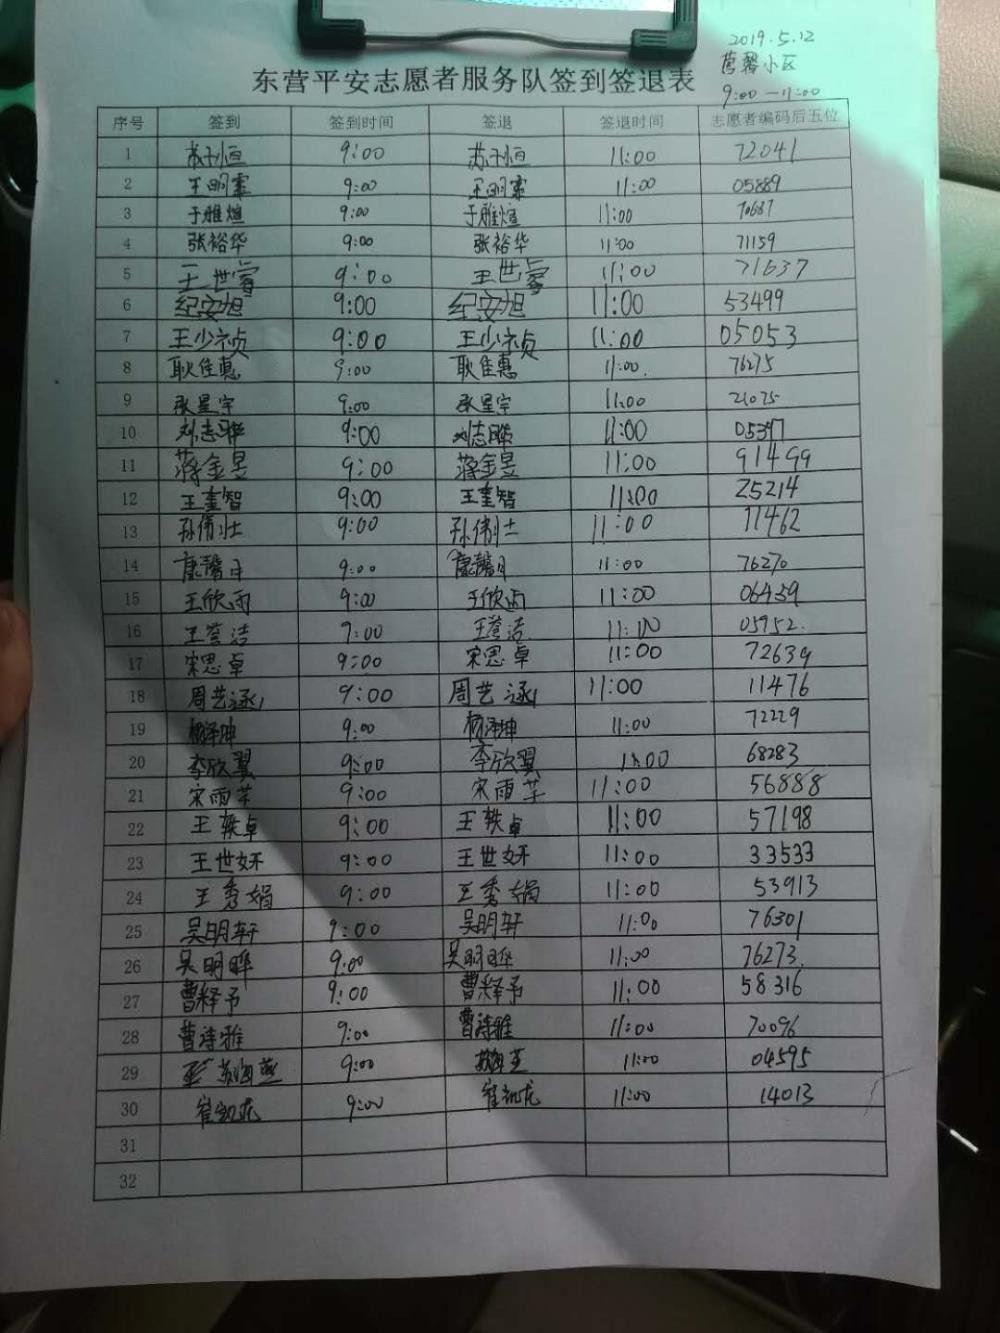 2019.5.12
馨小区
东营平安志愿者服务队签到签退表
9:00—11:00
序号 签到 签到时间 签退 签退时间 志愿者编码后五位
1 苏子恒 9:00 苏子恒 11:00 72041
2 王明霏 9:00 王明霏 11:00 05889
3 于雅煊 9:00 于雅煊 11:00
4 张裕华 9:00 张裕华 11:00 71159
5 王世睿 9:00 王世睿 11:00 71637
6 纪安旭 9:00 纪安旭 11:00 53499
7 王少祯 9:00 王少祯 11:00 05053
8 耿佳惠 9:00 耿佳惠 11:00. 76275
9 张星宇 9:00 张星宇 11:00 21075
10 刘志晔 9:00 刘志晔 11:00 05397
11 蒋金昱 9:00 蒋金昱 11:00 91499
12 王奎智 9:00 王奎智 11:00 25214
13 孙伟壮 9:00 孙伟壮 11:00 11462
14 馨月 9:00 馨月 11:00 76270
15 王欣雨 9:00 王欣雨 11:00 06459
16 王誉洁 9:00 王誉洁 11:00 05952.
17 宋思卓 9:00 宋思卓 11:00 72639
18 周艺涵 9:00 周艺涵 11:00 11476
19 杨泽坤 9:00 杨泽坤 11:00 72229
20 李欣翼 9:00 李欣翼 11:00 68283
21 宋雨芊 9:00 宋雨芊 11:00 56888
22 王轶卓 9:00 王轶卓 11:00 57198
23 王世妍 9:00 王世妍 11:00 33533
24 王秀娟 9:00 王秀娟 11:00 53913
25 吴明轩 9:00 吴明轩 11:00 76301
26 吴明晔 9:00 吴明晔 11:00 76273.
27 曹释予 9:00 曹释予 11:00 58316
28 曹诗雅 9:00 曹诗雅 11:00 70096
29 苏海燕 9:00 苏海燕 11:00 04595
30 崔凯龙 9:00 崔凯龙 11:00 14013
31
32